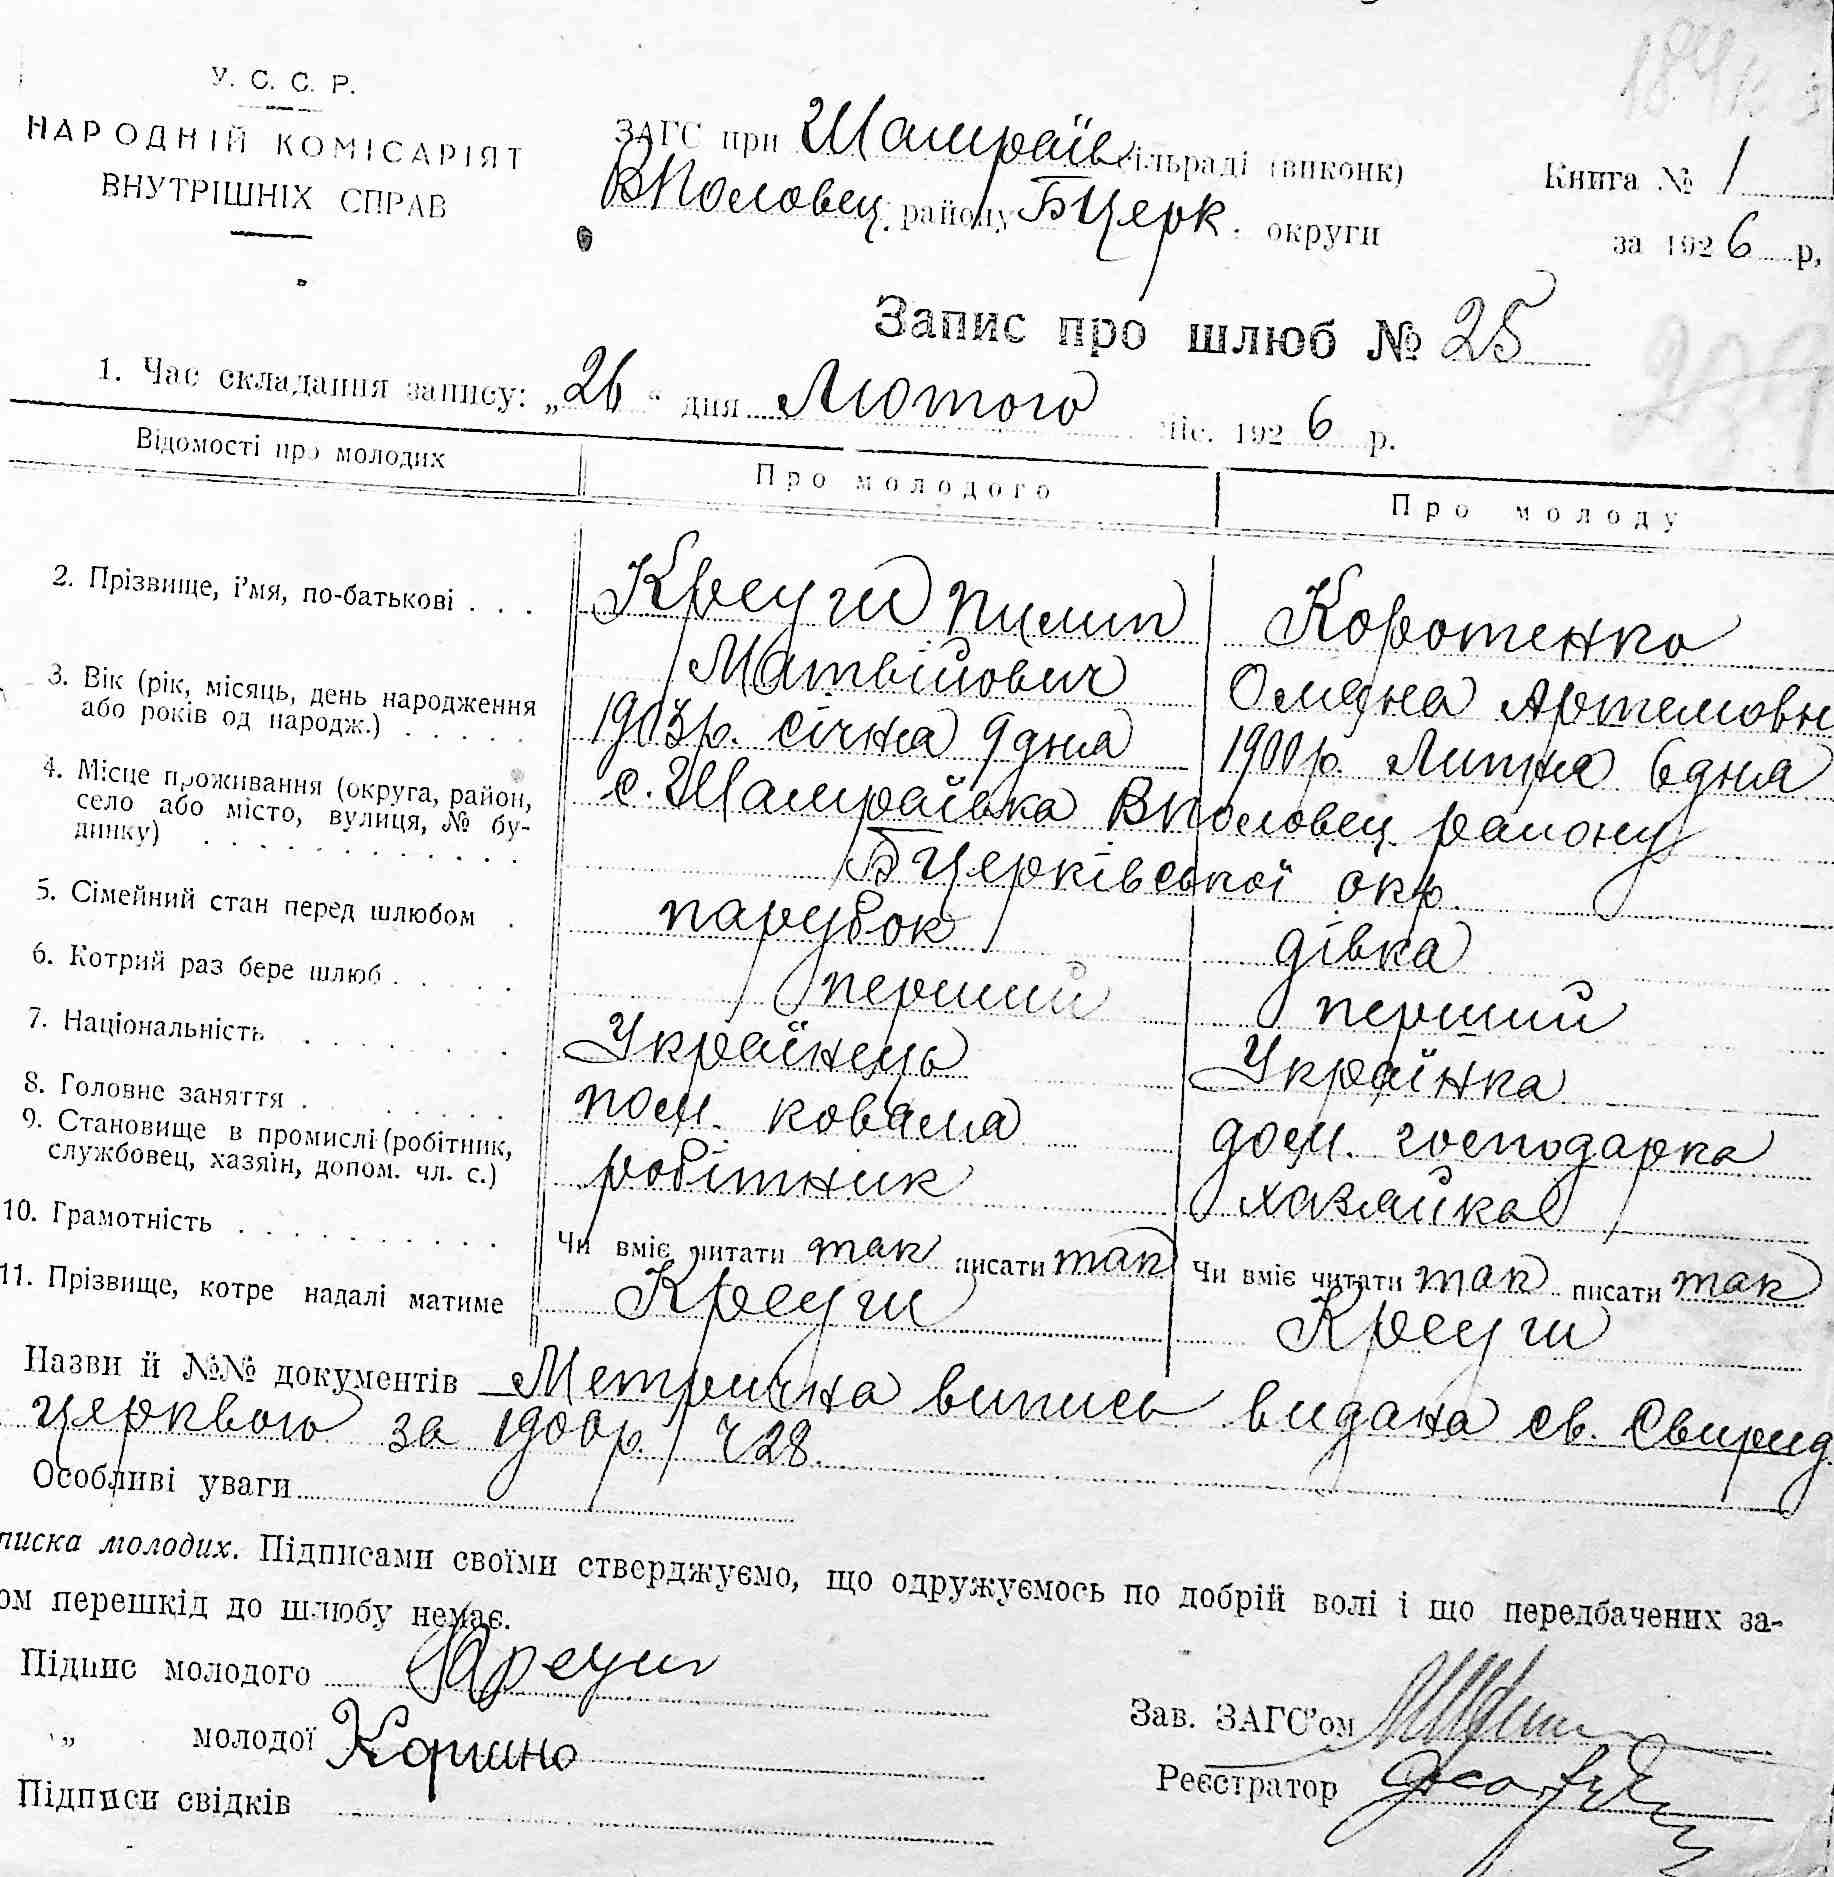 У. С. С. Р.
НАРОДНІЙ КОМІСАРІЯТ
ВНУТРІШНІХ СПРАВ
ЗАГС при Шамраїв сільраді (виконк)
ВПоловец. району БЦерк. округи
Книга № 1
за 1926 р.
Запис про шлюб № 25
1. Час складання запису: „26“ дня Лютого міс. 1926 р.
Відомості про молодих
Про молодого
Про молоду
2. Прізвище, і'мя, по-батькові . . .
Креуш Пилип
Матвійович
Коротенко
Омеляна Артемовн
3. Вік (рік, місяць, день народження
або років од народж.) . . . . .
1903р. січня 9 дня
1900р. Липня 6 дня
4. Місце проживання (округа, район,
село або місто, вулиця, № бу-
динку) . . . . . . . . . . . .
с. Шамраївка ВПоловец. району
БЦерківської окр.
5. Сімейний стан перед шлюбом .
парубок
дівка
6. Котрий раз бере шлюб . . . . .
перший
перший
7. Національність . . . . . . . .
Українець
Українка
8. Головне заняття . . . . . . . .
пом. коваля
дом. господарка
9. Становище в промислі (робітник,
службовец, хазяїн, допом. чл. с.)
робітник
хазяйка
10. Грамотність . . . . . . . . . .
Чи вміє читати так писати так
Чи вміє читати так писати так
11. Прізвище, котре надалі матиме
Креуш
Креуш
Назви й №№ документів Метрична випись видана св. Свирид.
церквою за 1900р. ч 28.
Особливі уваги
писка молодих. Підписами своїми стверджуємо, що одружуємось по добрій волі і що передбачених за-
ом перешкід до шлюбу немає.
Підпис молодого Креуш
„ молодої
Підписи свідків
Зав. ЗАГС'ом
Реєстратор